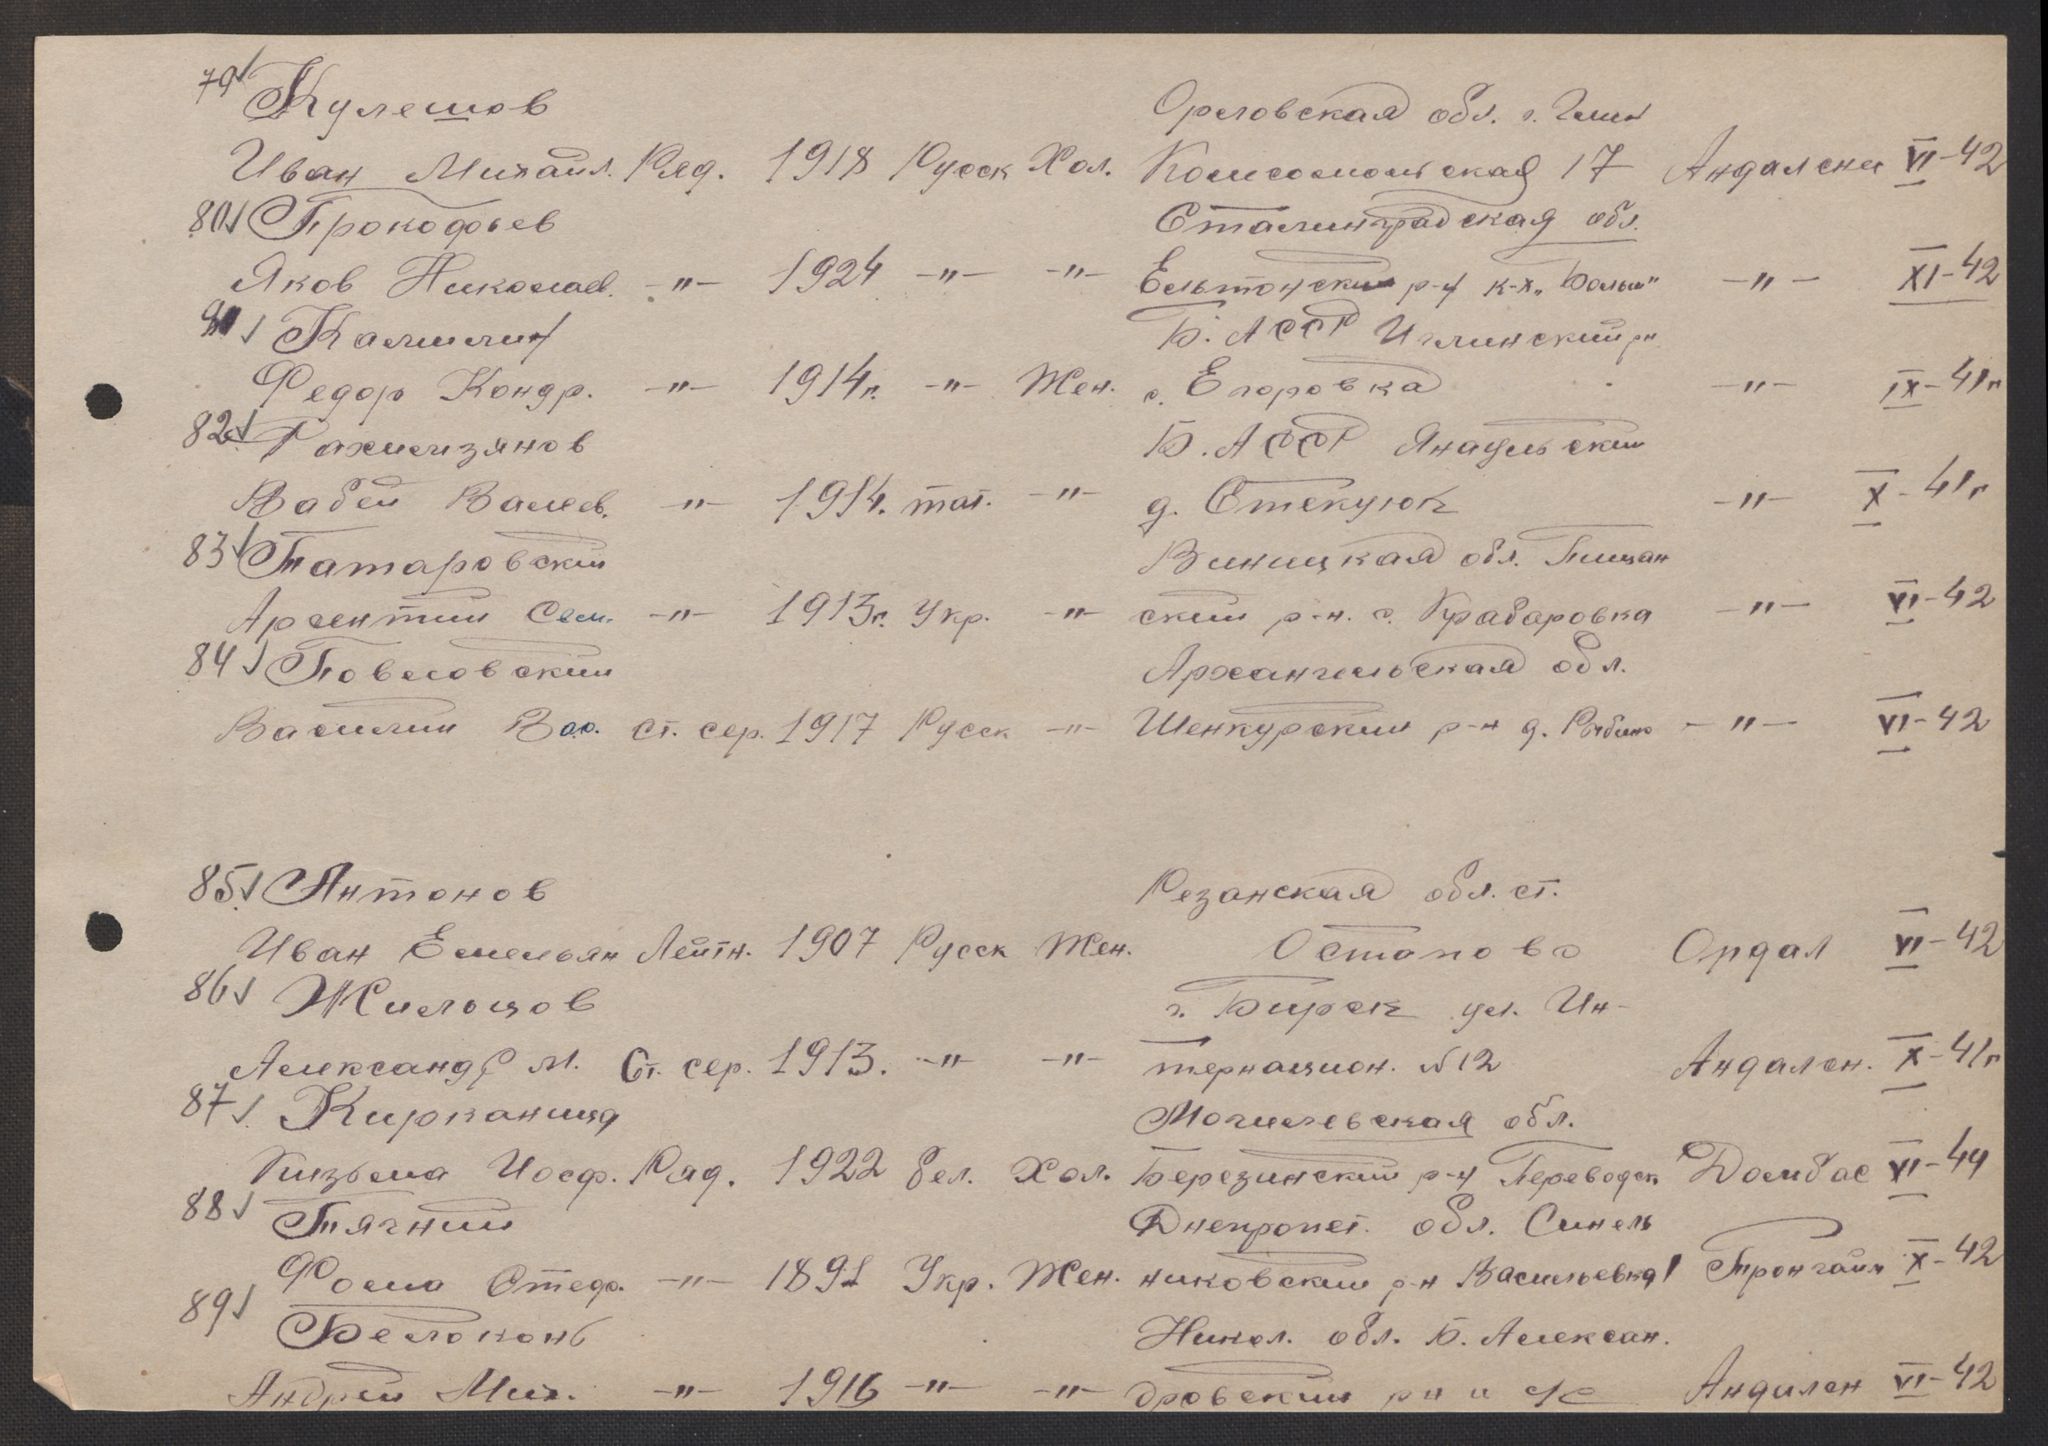 79 Кулешов Орловская обл. г.
Иван Михайл. Ряд. 1918 Русск Хол. Комсомольская 17 Андалсни VI-42
80 Прокофьев Сталинградская обл.
Яков Николаев. -"- 1924 -"- -"- Ельтонский р-н к-х „Больш" -"- XI-42
81 Калилин Б. АССР Иглинский рн
Федор Кондр. -"- 1914г. -"- Жен. с. Егоровка -"- IX-41г
82 Рахимзянов Б. АССР Янаульский
Вабей Валеев. -"- 1914. тат. -"- д. Стекуюк -"- X-41г
83 Татаровский Виницкая обл. Пищан
Арсентий Сем. -"- 1913г. Укр. -"- ский р-н. с. Грабаровка -"- VI-42
84 Повеловский Архангельская обл.
Василий Вас. ст. сер. 1917 Русск -"- Шенкурский р-н д. Рыбино -"- VI-42
85 Антонов Резанская обл. ст.
Иван Емельян Лейтн. 1907 Русск Жен. Остапово Ордал VI-42
86 Жильцов г. Бирск ул. Ин-
Александр М. Ст. сер. 1913. -"- -"- тернацион. №12 Андален. X-41г
87 Могилевская обл.
Кизьма Иосф. Ряд. 1922 бел. Хол. Березинский р-н Переводск. Домбас VI-44
88 Тягний Днепропет. обл. Синель
Фома Отефо. -"- 1891 Укр. Жен. никовский р-н Васильевка Тронгайм X-42
89 Белоконь Никол. обл. Б. Алексан.
Андрей Мих. -"- 1916 -"- -"- дровский рн и с/с Андален VI-42